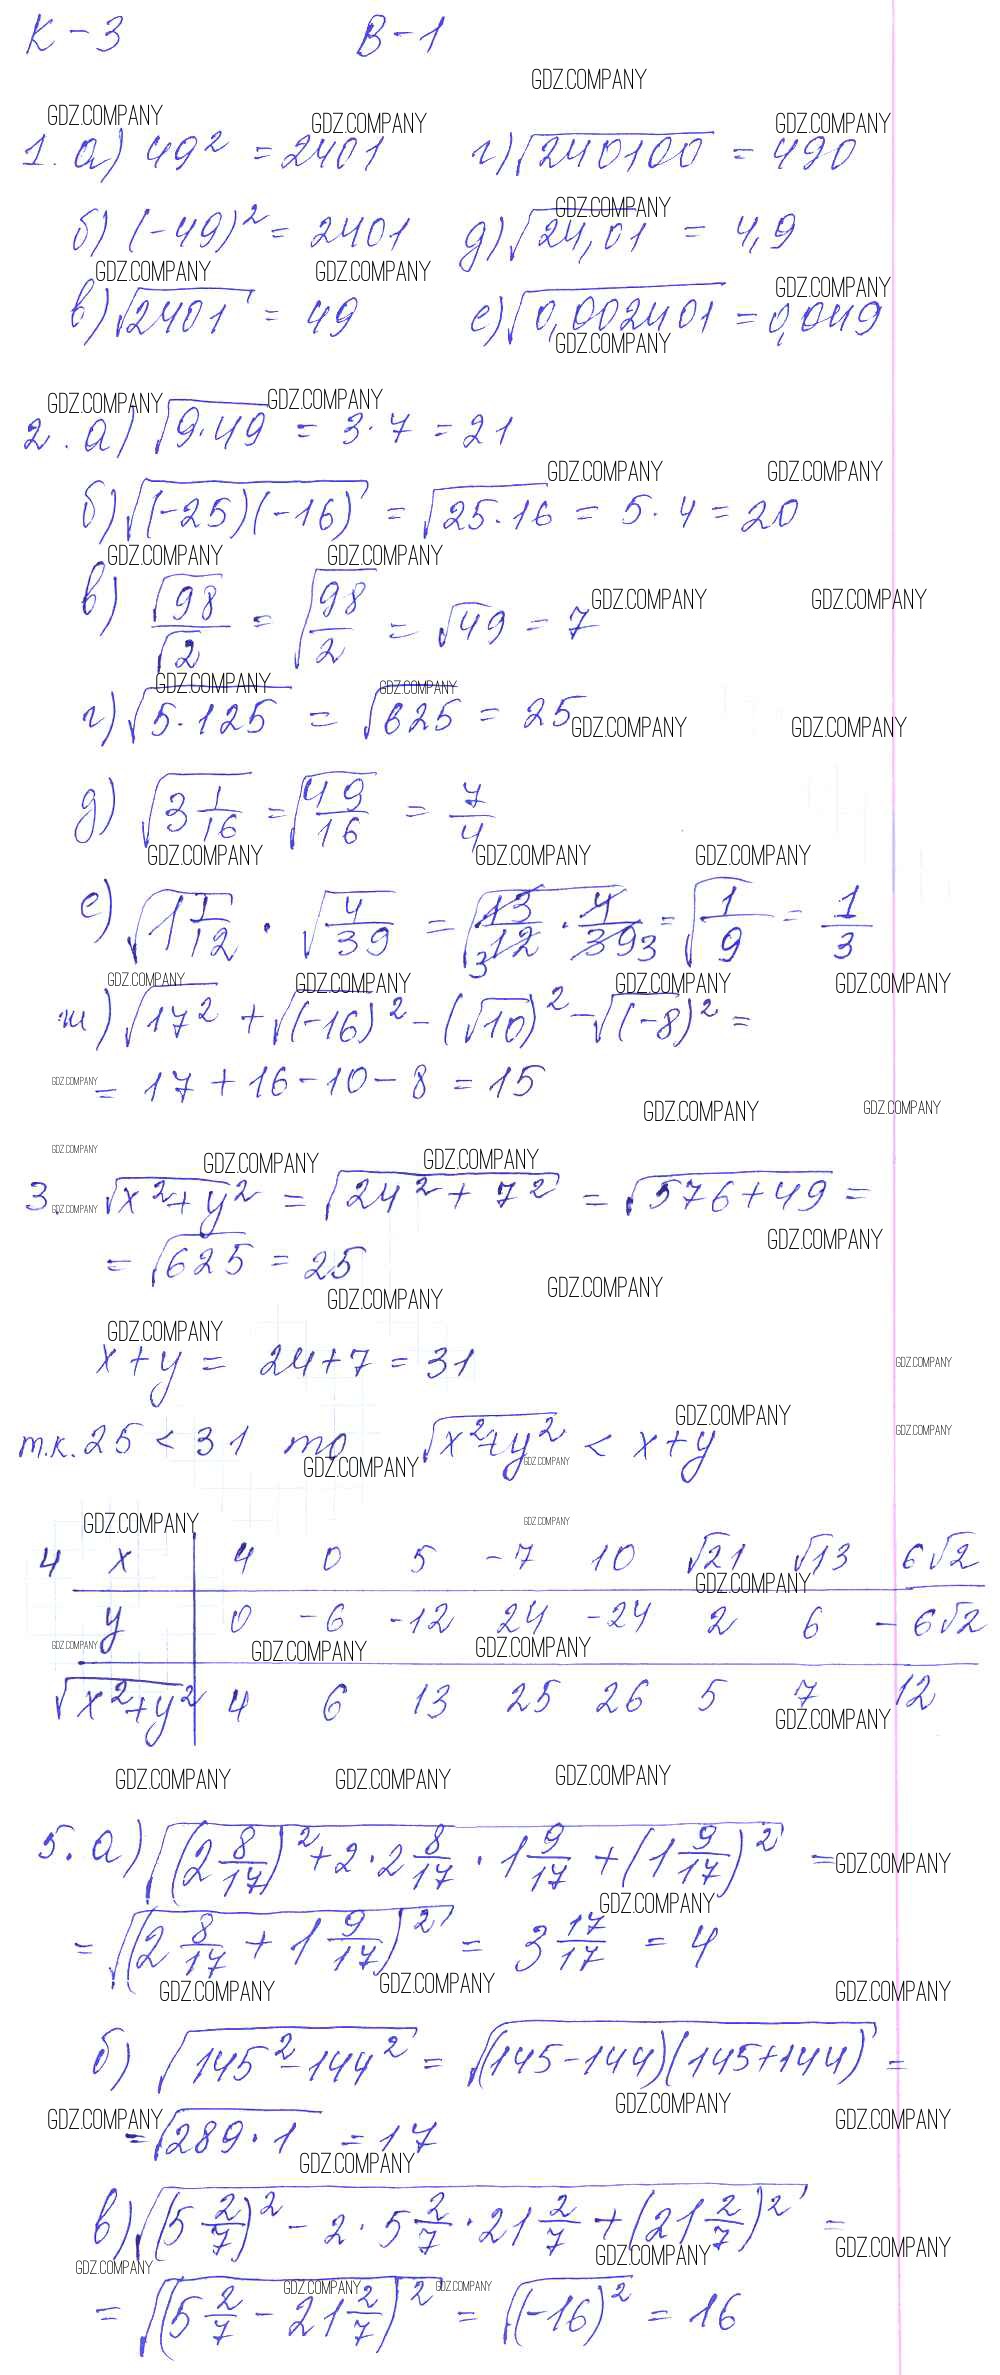 К-3 В-1
1. а) 49² = 2401 г) √240100 = 490
б) (-49)² = 2401 д) √24,01 = 4,9
в) √2401 = 49 е) √0,002401 = 0,049
2. а) √9·49 = 3·7 = 21
б) √(-25)(-16) = √25·16 = 5·4 = 20
в) √98/√2 = √98/2 = √49 = 7
г) √5·125 = √625 = 25
д) √3 1/16 = √49/16 = 7/4
е) √1 1/12 · √4/39 = √13/3 12 · 4/39 3 = √1/9 = 1/3
ж) √17² + √(-16)² - (√10)² - √(-8)² =
= 17 + 16 - 10 - 8 = 15
3. √x²+y² = √24² + 7² = √576+49 =
= √625 = 25
x+y = 24+7 = 31
т.к. 25 < 31 то √x²+y² < x+y
4 x 4 0 5 -7 10 √21 √13 6√2
y 0 -6 -12 24 -24 2 6 -6√2
√x²+y² 4 6 13 25 26 5 7 12
5. а) √(2 8/17)² + 2·2 8/17 · 1 9/17 + (1 9/17)² =
= √(2 8/17 + 1 9/17)² = 3 17/17 = 4
б) √145² - 144² = √(145-144)(145+144) =
= √289·1 = 17
в) √(5 2/7)² - 2·5 2/7 · 21 2/7 + (21 2/7)² =
= √(5 2/7 - 21 2/7)² = √(-16)² = 16
GDZ.COMPANY